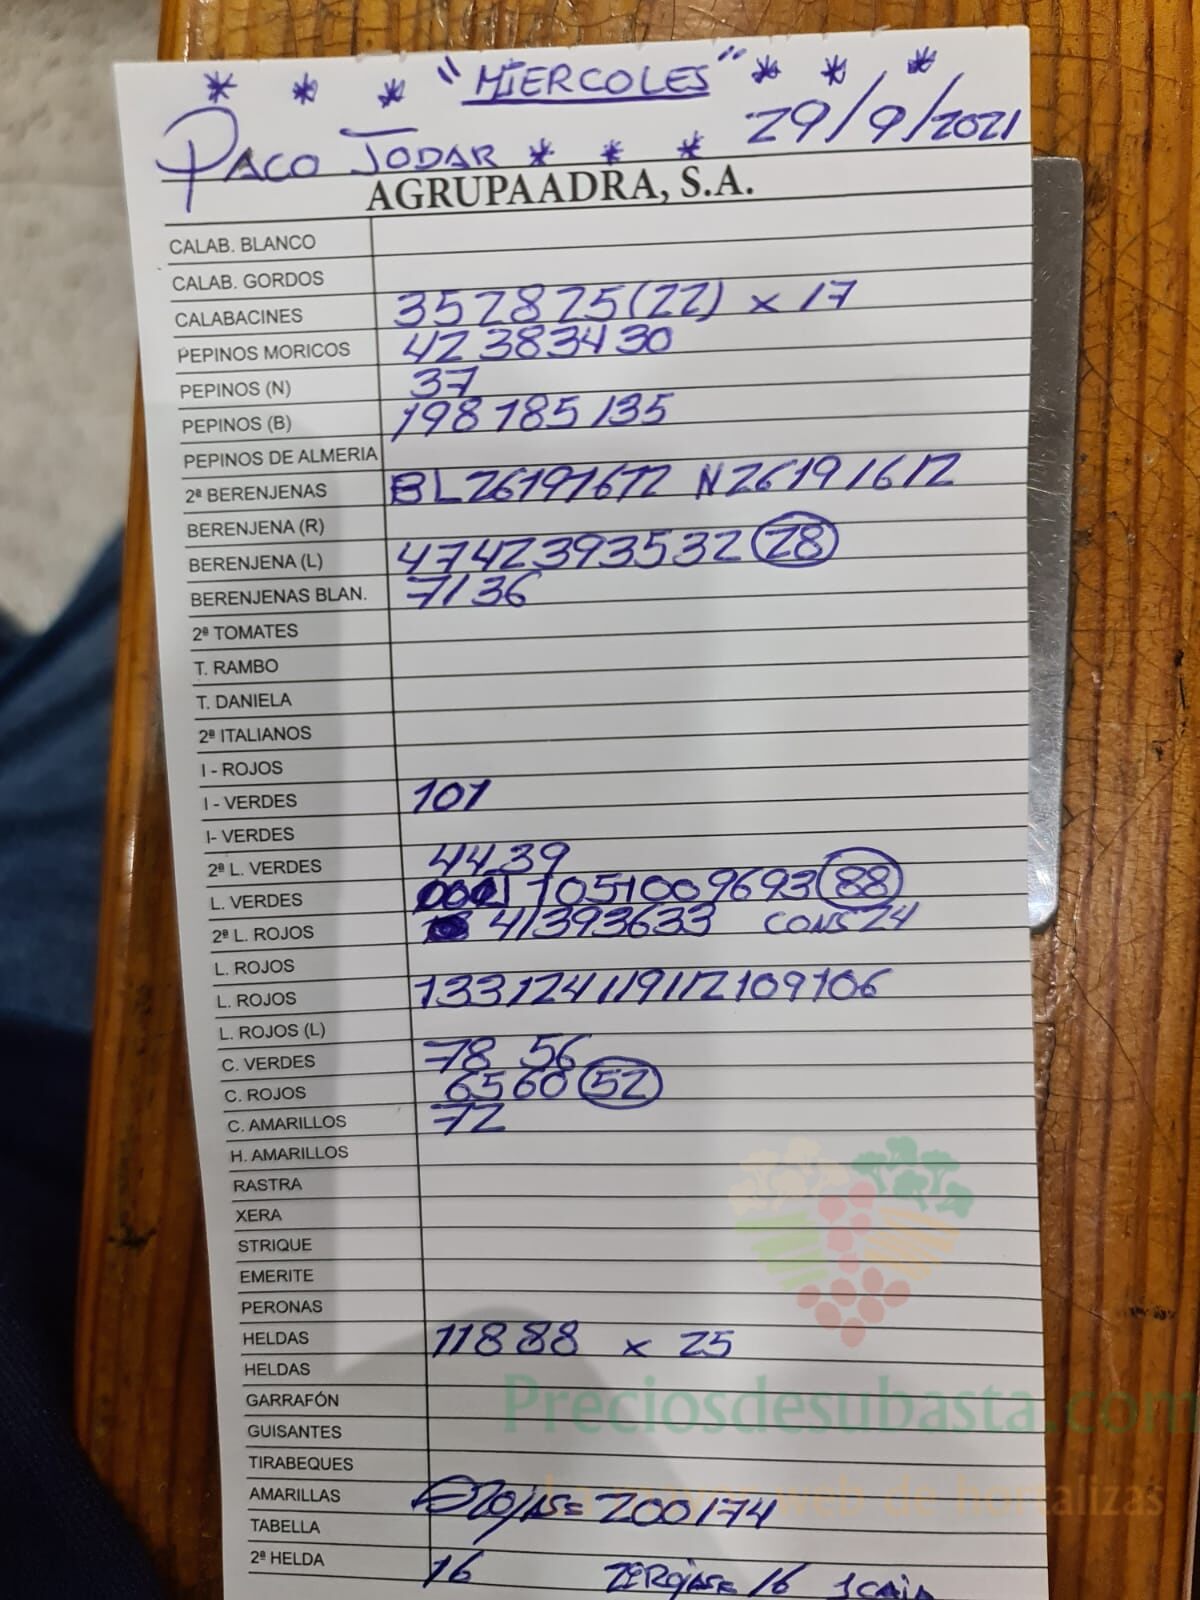 * * * "MIERCOLES" * * *
PACO JODAR * * * 29/9/2021
AGRUPAADRA, S.A.
CALAB. BLANCO
CALAB. GORDOS
CALABACINES 35 28 25 (22) x 17
PEPINOS MORICOS 42 38 34 30
PEPINOS (N) 37
PEPINOS (B) 198 185 135
PEPINOS DE ALMERIA
2ª BERENJENAS BL 26 19 16 12 N 26 19 16 12
BERENJENA (R)
BERENJENA (L) 47 42 39 35 32 28
BERENJENAS BLAN. 71 36
2ª TOMATES
T. RAMBO
T. DANIELA
2ª ITALIANOS
I - ROJOS
I - VERDES 101
I- VERDES
2ª L. VERDES 44 39
L. VERDES 105 100 96 93 88
2ª L. ROJOS 41 39 36 33 CONS 24
L. ROJOS
L. ROJOS 133 124 119 112 109 106
L. ROJOS (L)
C. VERDES 78 56
C. ROJOS 65 60 52
C. AMARILLOS 72
H. AMARILLOS
RASTRA
XERA
STRIQUE
EMERITE
PERONAS
HELDAS 118 88 x 25
HELDAS
GARRAFÓN
GUISANTES
TIRABEQUES
AMARILLAS 200 174
TABELLA
2ª HELDA 16 16 1 CAJA
Preciosdesubasta.com
La mayor web de hortalizas